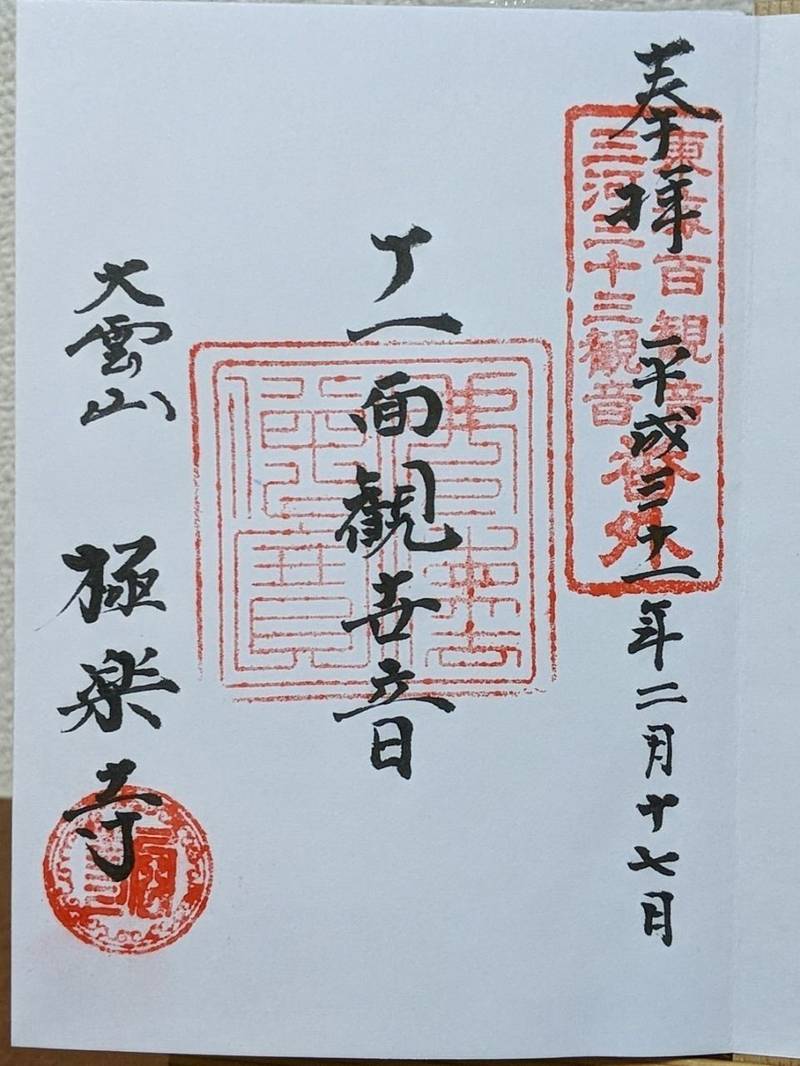 奉拝
平成三十一年二月十七日
東海百観音
三河三十三観音
番外
十一面観世音
大雲山
極楽寺